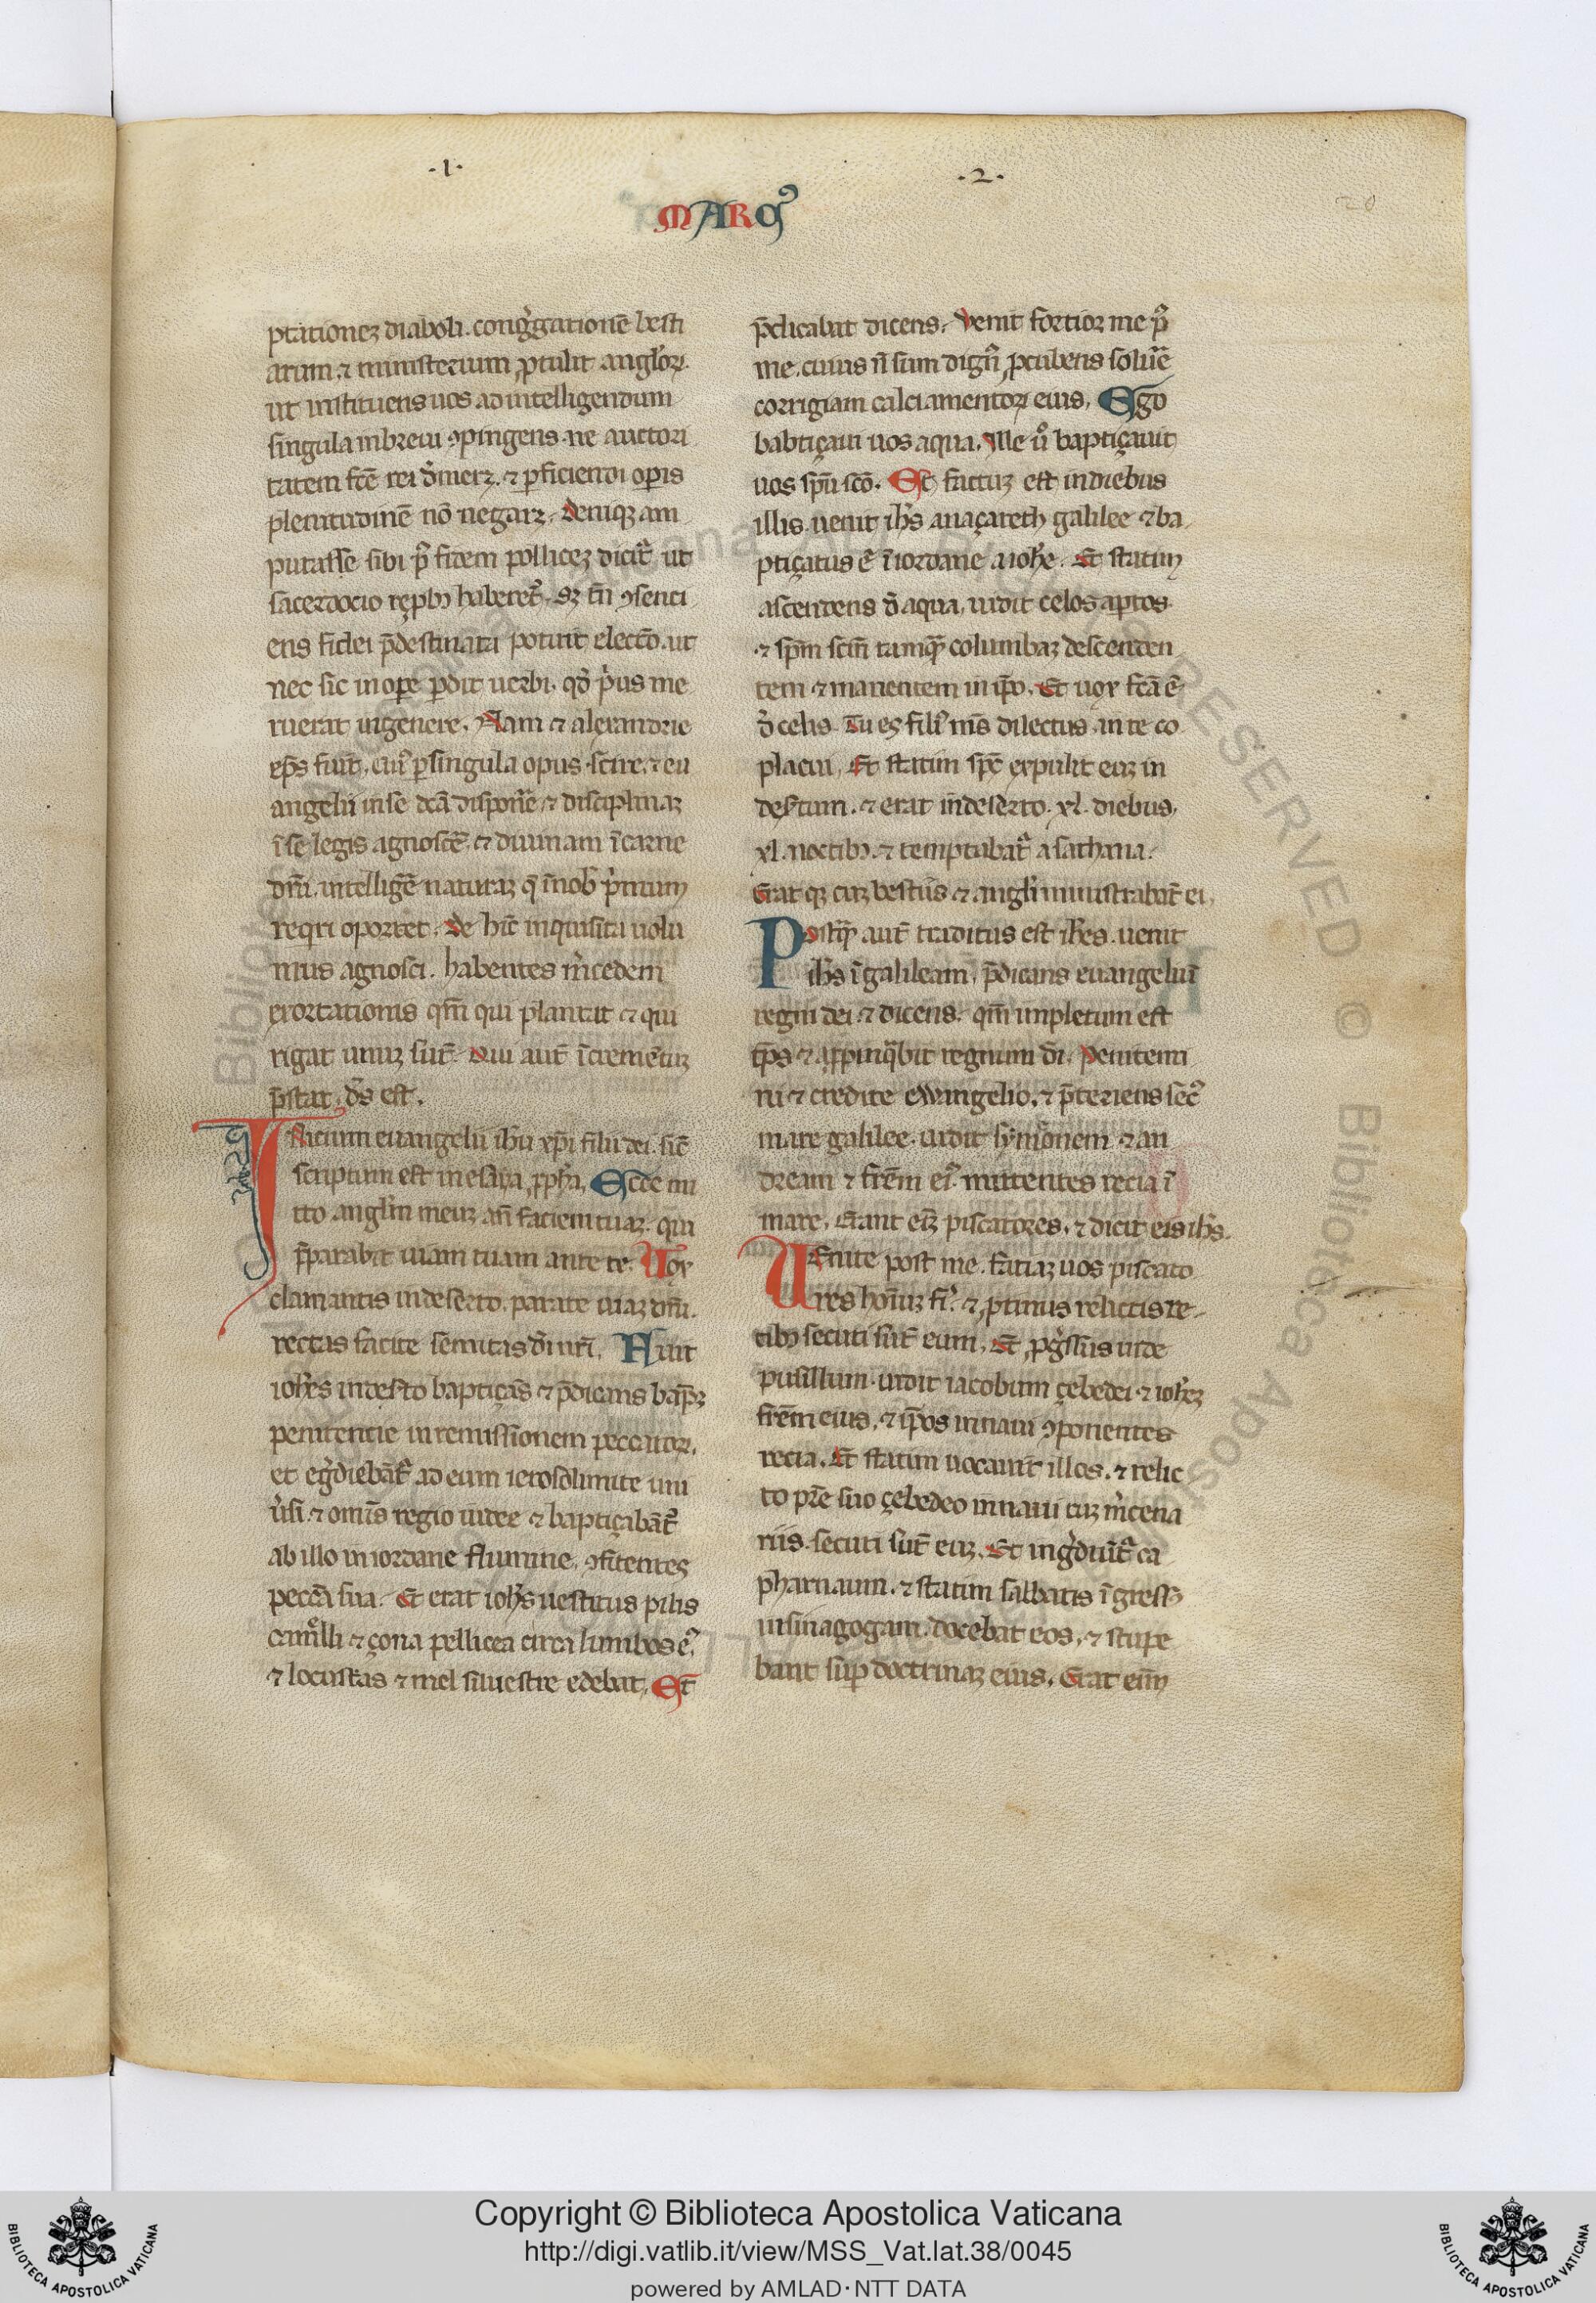 ·1·
·2·
20
MARCꝰ
ptationez diaboli. congͥgationē besti
arum ⁊ ministerium ꝓtulit angl̕oꝝ.
ut instituens uos ad intelligendum
singula in breui ꝯpingens ne auctori
tatem fc̄e rei d̕merꝫ. ⁊ ꝑficiendi oꝑis
plenitudinē nō negarꝫ. deniqꝫ am
putasse sibi pꝰ fidem pollicez dicit᷑ ut
sacerdocio rep̱bꝫ haberet᷑. sꝫ tn̄ ꝯsenci
ens fidei p̄destinata potuit electō. ut
nec sic in oꝑe ꝑdit uerbi. qd̕ pͥus me
ruerat in genere. Nam ⁊ alexandrie
ep̄s fuit, cuiꝰ ꝑ singula opus scire. ⁊ eu
angelii in se dcā disponēe ⁊ disciplinaz
ī se legis agnoscē. ⁊ diuinam ī carne
dn̄i. intelligē naturaz q̄ ī nob̕ pͥmum
reqͥri oportet. de hīc inquisita uolu
mus agnosci. habentes m̕cedem
exortationis qm̄ qui plantat ⁊ qui
rigat unuz sūt. Qui aut̄ īcremētuz
p̄stat. ds̄ est.
INitium euangelii ihu xp̄i filii dei. sic̄
scriptum est in esaya ꝓph̕a. Ecce mi
tto angl̕m meuz an̄ faciem tuaz. qui
p̄parabit uiam tuam ante te. Uox
clamantis in deserto. parate uiaz dn̄i.
rectas facite semitas d̕i nr̄i. Fuit
ioh̕es in desꝰto baptiçās ⁊ p̄dicans bap̄z
penitentie in remissionem peccatoꝝ.
et egͥdiebāt᷑ ad eum ierosolimite uni
u̕si. ⁊ omīs regio iudee ⁊ baptiçabāt᷑
ab illo in iordane flumine, ꝯfitentes
peccā sua. Et erat ioh̕s uestitus pilis
camelli ⁊ çona pellicea circa lumbos eꝰ
⁊ locustas ⁊ mel siluestre edebat. Et
p̄dicabat dicens. Venit fortior me pꝰ
me. cuius n̄ sum dignꝰ ꝓcubens solu̕e
corrigiam calciamentoꝝ eius. Ego
babtiçaui uos aqua. Ille u̕o baptiçauit
uos sp̄u scō. Et factuz est in diebus
illis. uenit ih̕s a naçareth galilee ⁊ ba
ptiçatus ē ī iordane a ioh̕e. Et statim
ascendens d̕ aqua, uidit celos aꝑtos
⁊ sp̄m scm̄ tamqͣꝫ columbaz descenden
tem ⁊ manentem in ip̄o. Et uox fcā ē
d̕ celis. Tu es filiꝰ ms̄ dilectus. in te co
placui. Et statim sp̄c expulit euz in
desꝰtum. ⁊ erat in deserto. xl. diebus.
xl. noctibꝫ. ⁊ temptabat᷑ a sathana.
Erat qꝫ cuz bestiis ⁊ angl̕i ministrabāt ei.
Postqͣꝫ aut̄ traditus est ioh̕es. uenit
ih̕s ī galileam. p̄dicans euangeliū
regni dei. ⁊ dicens. qm̄ impletum est
tp̄s ⁊ appinqͣbit regnum di. Penitemi
ni ⁊ credite ewangelio. ⁊ p̄teriens secꝰ
mare galilee. uidit symonem ⁊ an
dream ⁊ frēm eiꝰ mittentes recia ī
mare. Erant eīz piscatores. ⁊ dicit eis ih̕s.
UEnite post me. faciaz uos piscato
res homīuz fi᷑. ⁊ ꝓtinus relictis re-
tibꝫ secuti sūt eum. Et ꝓgͥssus inde
pusillum. uidit iacobum çebedei ⁊ ioh̕ez
frēm eius. ⁊ ip̄os in naui ꝯponentes
recia. Et statim uocauit illos. ⁊ relic
to pr̄e suo çebedeo in naui cuz m̕cena
riis. secuti sūt euz. Et ingͥdiūt᷑ ca
pharnaum. ⁊ statim sabbatis īgressꝰ
in sinagogam. docebat eos. ⁊ stupe
bant suꝑ doctrinaz eius. Erat enim
Copyright © Biblioteca Apostolica Vaticana
http://digi.vatlib.it/view/MSS_Vat.lat.38/0045
powered by AMLAD·NTT DATA
BIBLIOTECA APOSTOLICA VATICANA
BIBLIOTECA APOSTOLICA VATICANA